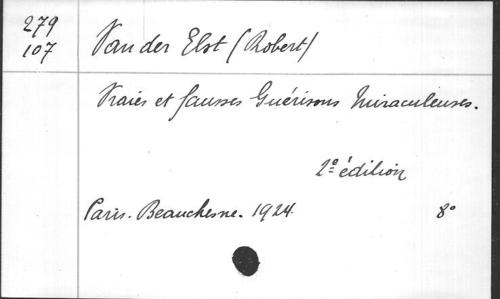 279
107
Van der Elst (Robert)
Vraies et fausses Guérisons Miraculeuses.
2e édition
Paris. Beauchesne. 1924. 8°